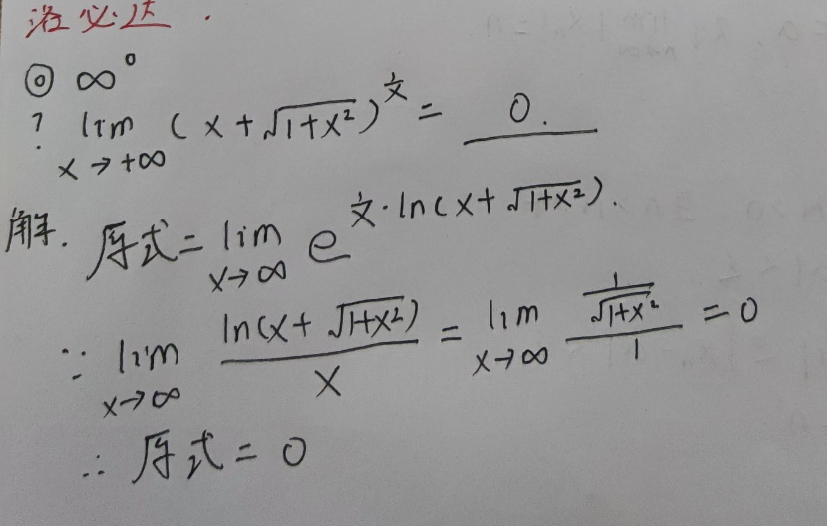 洛必达.
⓪ ∞⁰
? lim (x+√(1+x²))^(1/x) = 0.
x→+∞
解. 原式=lim e^(1/x·ln(x+√(1+x²)).
x→∞
∵ lim ln(x+√(1+x²))/x = lim (1/√(1+x²))/1 = 0
x→∞ x→∞
∴ 原式=0